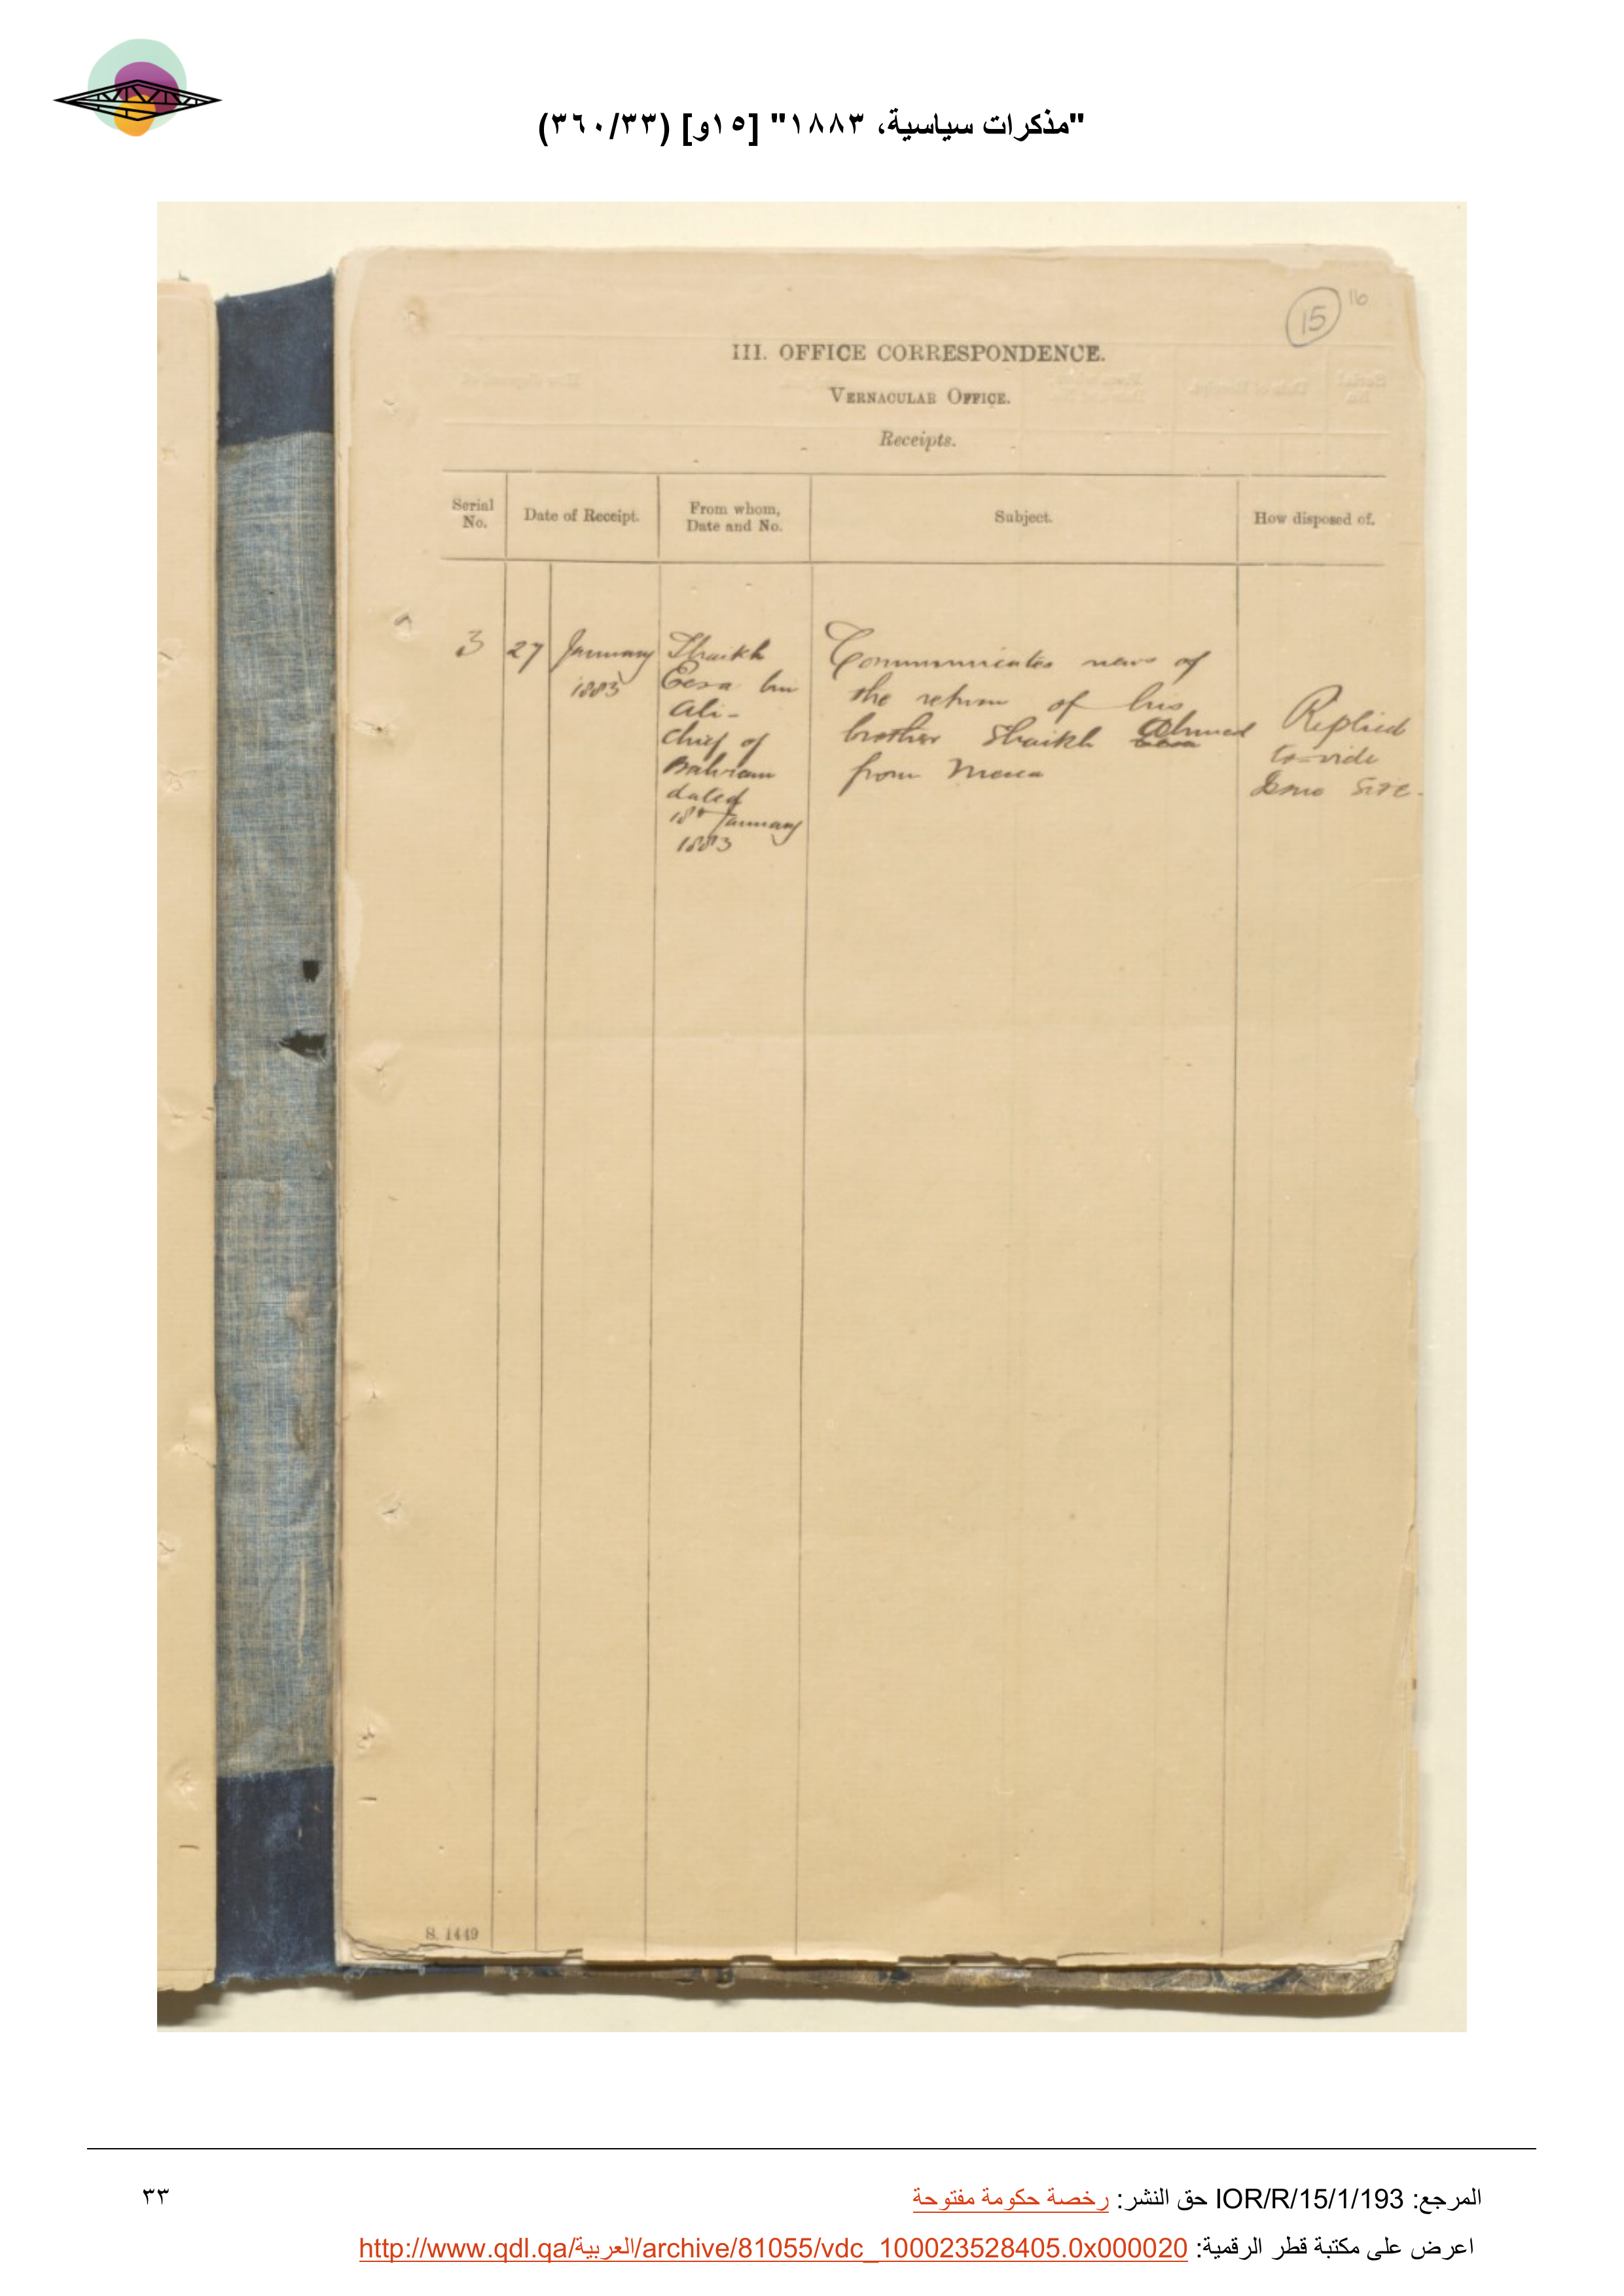 "مذكرات سياسية، ١٨٨٣" [١٥و] (٣٦٠/٣٣)
15 16
III. OFFICE CORRESPONDENCE.
VERNACULAR OFFICE.
Receipts.
Serial No.
Date of Receipt.
From whom, Date and No.
Subject.
How disposed of.
3
27
January
1883
Shaikh
Eesa bin
Ali-
Chief of
Bahrain
dated
18th January
1883
Communicates news of
the return of his
brother Shaikh Ahmed
from Mecca
Replied
to vide
S. 1449
المرجع: IOR/R/15/1/193 حق النشر: رخصة حكومة مفتوحة
٣٣
اعرض على مكتبة قطر الرقمية: http://www.qdl.qa/العربية/archive/81055/vdc_100023528405.0x000020